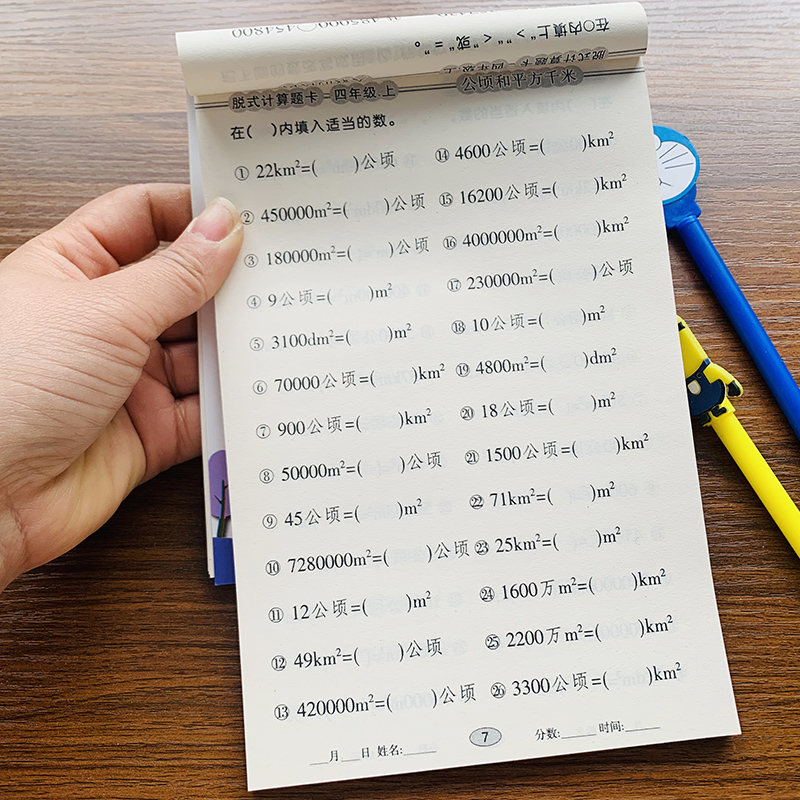 在○内填上“>”“<”或“=”。
脱式计算题卡 四年级.上 公顷和平方千米
在( )内填入适当的数。
① 22km²=( )公顷 ⑭ 4600公顷=( )km²
② 450000m²=( )公顷 ⑮ 16200公顷=( )km²
③ 180000m²=( )公顷 ⑯ 4000000m²=( )km²
④ 9公顷=( )m² ⑰ 230000m²=( )公顷
⑤ 3100dm²=( )m² ⑱ 10公顷=( )m²
⑥ 70000公顷=( )km² ⑲ 4800m²=( )dm²
⑦ 900公顷=( )km² ⑳ 18公顷=( )m²
⑧ 50000m²=( )公顷 ㉑ 1500公顷=( )km²
⑨ 45公顷=( )m² ㉒ 71km²=( )m²
⑩ 7280000m²=( )公顷 ㉓ 25km²=( )m²
⑪ 12公顷=( )m² ㉔ 1600万m²=( )km²
⑫ 49km²=( )公顷 ㉕ 2200万m²=( )km²
⑬ 420000m²=( )公顷 ㉖ 3300公顷=( )km²
___月___日 姓名:_____ 7 分数:_____时间:_____